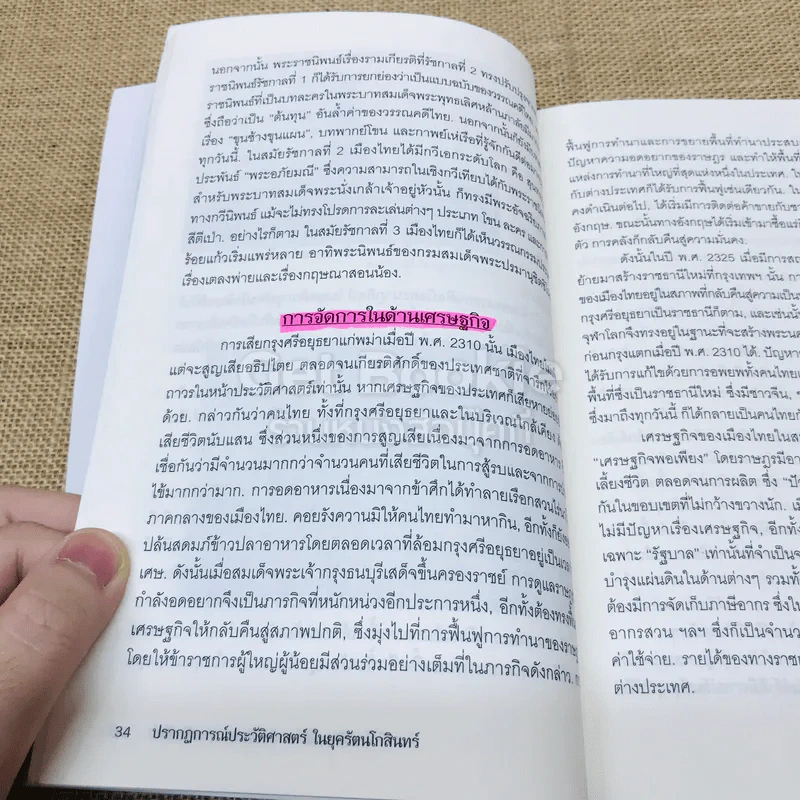 นอกจากนั้น พระราชนิพนธ์เรื่องรามเกียรติที่รัชกาลที่ 2 ทรงปรับปรุง
ราชนิพนธ์รัชกาลที่ 1 ก็ได้รับการยกย่องว่าเป็นแบบฉบับของวรรณคดีไทย
ราชนิพนธ์ที่เป็นบทละครในพระบาทสมเด็จพระพุทธเลิศหล้านภาลัย
ซึ่งถือว่าเป็น "ต้นทุน" อันล้ำค่าของวรรณคดีไทย. นอกจากนั้นก็ยังมี
เรื่อง "ขุนช้างขุนแผน", บทพากย์โขน และกาพย์เห่เรือที่รู้จักกันดี
ทุกวันนี้. ในสมัยรัชกาลที่ 2 เมืองไทยได้มีกวีเอกระดับโลก คือ
ประพันธ์ "พระอภัยมณี" ซึ่งความสามารถในเชิงกวีเทียบได้กับพระราช
สำหรับพระบาทสมเด็จพระนั่งเกล้าเจ้าอยู่หัวนั้น ก็ทรงมีพระอัจฉริย
ทางกวีนิพนธ์ แม้จะไม่ทรงโปรดการละเล่นต่างๆ ประเภท โขน ละคร และ
สีตีเป่า. อย่างไรก็ตาม ในสมัยรัชกาลที่ 3 เมืองไทยก็ได้เห็นวรรณกรรม
ร้อยแก้วเริ่มแพร่หลาย อาทิพระนิพนธ์ของกรมสมเด็จพระปรมานุชิต
เรื่องเตลงพ่ายและเรื่องกฤษณาสอนน้อง.
การจัดการในด้านเศรษฐกิจ
การเสียกรุงศรีอยุธยาแก่พม่าเมื่อปี พ.ศ. 2310 นั้น เมืองไทย
แต่จะสูญเสียอธิปไตย ตลอดจนเกียรติศักดิ์ของประเทศชาติที่จารึก
ถาวรในหน้าประวัติศาสตร์เท่านั้น หากเศรษฐกิจของประเทศก็เสียหาย
ด้วย. กล่าวกันว่าคนไทย ทั้งที่กรุงศรีอยุธยาและในบริเวณใกล้เคียง
เสียชีวิตนับแสน ซึ่งส่วนหนึ่งของการสูญเสียเนื่องมาจากการอดอาหาร
เชื่อกันว่ามีจำนวนมากกว่าจำนวนคนที่เสียชีวิตในการสู้รบและจากการ
ไข้มากกว่ามาก. การอดอาหารเนื่องมาจากข้าศึกได้ทำลายเรือกสวนไร่นา
ภาคกลางของเมืองไทย. คอยรังความมิให้คนไทยทำมาหากิน, อีกทั้งก็ยัง
ปล้นสดมภ์ข้าวปลาอาหารโดยตลอดเวลาที่ล้อมกรุงศรีอยุธยาอยู่เป็นเวลา
เศษ. ดังนั้นเมื่อสมเด็จพระเจ้ากรุงธนบุรีเสด็จขึ้นครองราชย์ การดูแลราษฎร
กำลังอดอยากจึงเป็นภารกิจที่หนักหน่วงอีกประการหนึ่ง, อีกทั้งต้องทรง
เศรษฐกิจให้กลับคืนสู่สภาพปกติ, ซึ่งมุ่งไปที่การฟื้นฟูการทำนาของ
โดยให้ข้าราชการผู้ใหญ่ผู้น้อยมีส่วนร่วมอย่างเต็มที่ในภารกิจดังกล่าว.
34 ปรากฏการณ์ประวัติศาสตร์ ในยุครัตนโกสินทร์
ฟื้นฟูการทำนาและการขยายพื้นที่ทำนาประสบ
ปัญหาความอดอยากของราษฎร และทำให้พื้นที่
แหล่งการทำนาที่ใหญ่ที่สุดแห่งหนึ่งในประเทศ.
กับต่างประเทศก็ได้รับการฟื้นฟูเช่นเดียวกัน.
คงดำเนินต่อไป, ได้เริ่มมีการติดต่อค้าขายกับ
อังกฤษ. ขณะนั้นทางอังกฤษได้เริ่มเข้ามาซื้อ
ตัว การคลังก็กลับคืนสู่ความมั่นคง.
ดังนั้นในปี พ.ศ. 2325 เมื่อมีการ
ย้ายมาสร้างราชธานีใหม่ที่กรุงเทพฯ นั้น
ของเมืองไทยอยู่ในสภาพที่กลับคืนสู่ความเป็น
กรุงศรีอยุธยาเป็นราชธานี. และเช่นนั้น
จุฬาโลกจึงทรงอยู่ในฐานะที่จะสร้างพระนคร
ก่อนกรุงแตกเมื่อปี พ.ศ. 2310 ได้. ปัญหา
ได้รับการแก้ไขด้วยการอพยพทั้งคนไทย
พื้นที่ซึ่งเป็นราชธานีใหม่ ซึ่งมีชาวจีน,
ซึ่งมาถึงทุกวันนี้ ก็ได้กลายเป็นคนไทย
เศรษฐกิจของเมืองไทยใน
"เศรษฐกิจพอเพียง" โดยราษฎรมี
เลี้ยงชีวิต ตลอดจนการผลิต ซึ่ง
กันในขอบเขตที่ไม่กว้างขวางนัก.
ไม่มีปัญหาเรื่องเศรษฐกิจ, อีกทั้ง
เฉพาะ "รัฐบาล" เท่านั้นที่จำเป็น
บำรุงแผ่นดินในด้านต่างๆ รวมทั้ง
ต้องมีการจัดเก็บภาษีอากร ซึ่งใน
อากรสวน ฯลฯ ซึ่งก็เป็นจำนวน
ค่าใช้จ่าย. รายได้ของทางราช
ต่างประเทศ.